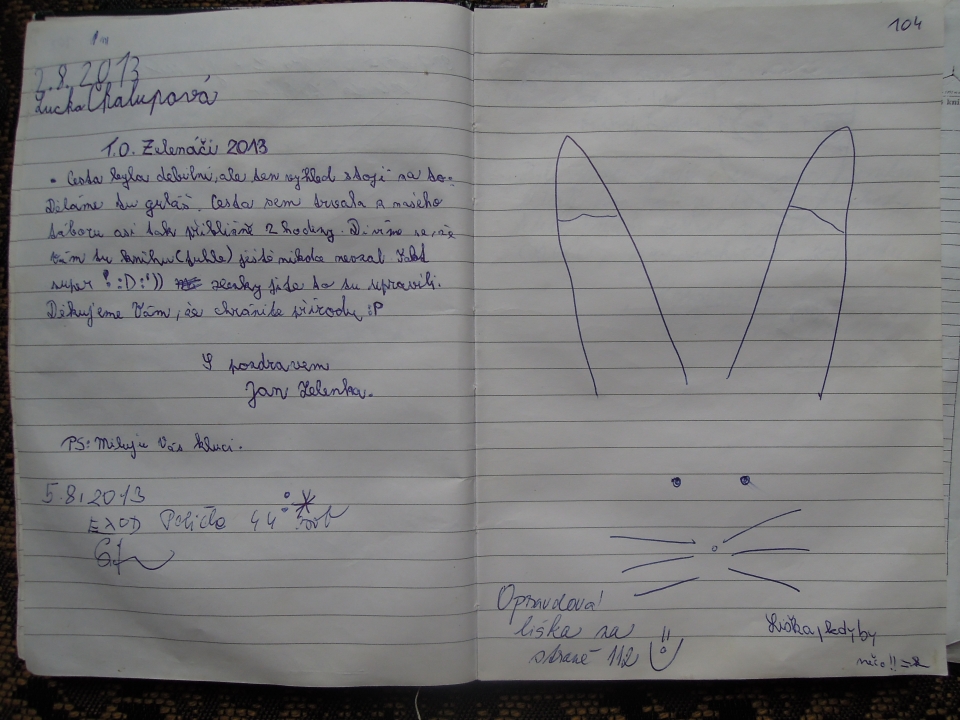 2.8.2013
Lucka Chalupová
T.O. Zelenáči 2013
• Cesta byla debilní, ale ten výhled stojí na to.
Děláme tu guláš. Cesta sem trvala z našeho
táboru asi tak přibližně 2 hodiny. Divíme se, že
vám tu knihu (fuhle) ještě nikdo nevzal
super! :D :')) jste to tu upravili.
Děkujeme Vám, že chráníte přírodu :P
S pozdravem
Jan Zelenka.
PS: Miluju Vás kluci.
5.8.2013
44
104
Opravdová
liška na
straně 112
Liška, kdyby
něco!! =